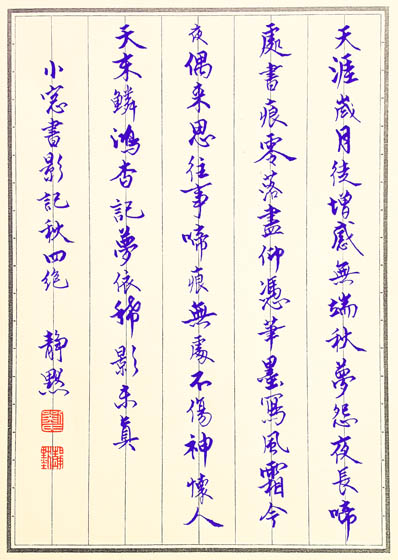 天涯歲月徒增感無端秋夢怨夜長啼
處書痕零落盡仰憑筆墨寫風霜今
夜偶来思往事啼痕無處不傷神懷人
天末鱗鴻杳記夢依稀影未真
小窓書影記秋四絶 静黙